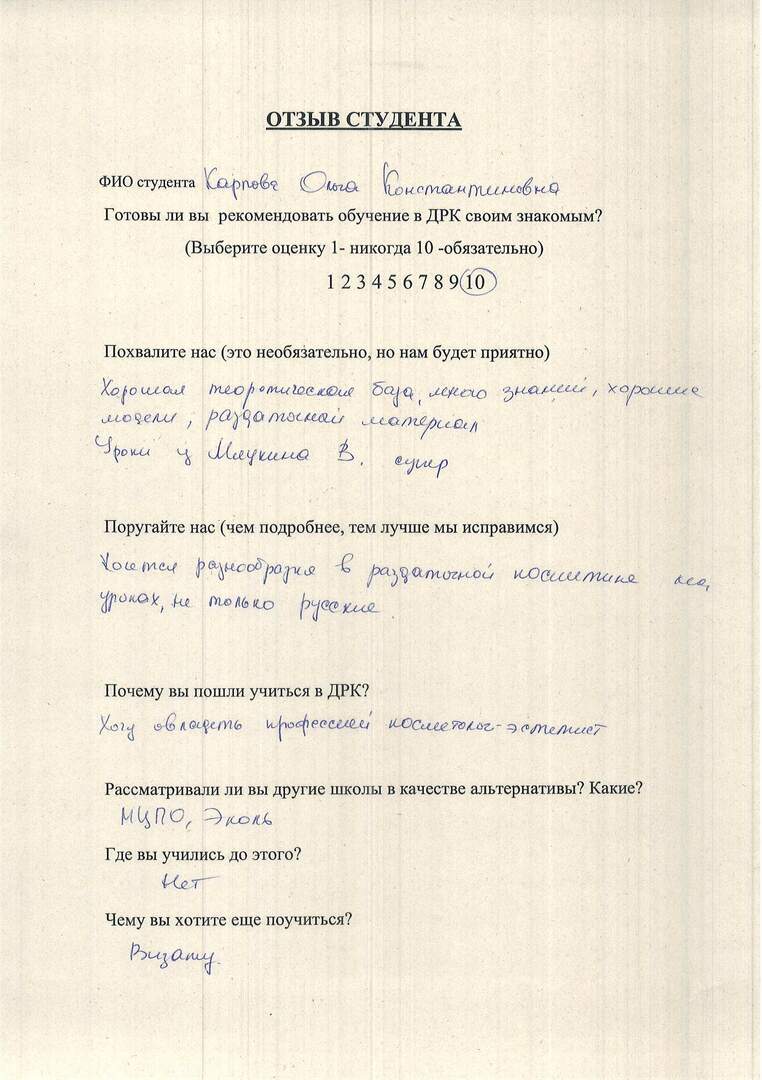 ОТЗЫВ СТУДЕНТА
ФИО студента Карпова Ольга Константиновна
Готовы ли вы рекомендовать обучение в ДРК своим знакомым?
(Выберите оценку 1- никогда 10 -обязательно)
1 2 3 4 5 6 7 8 9 10
Похвалите нас (это необязательно, но нам будет приятно)
Хорошая теоретическая база, много знаний, хорошие
модели, раздаточный материал
Уроки у В. супер
Поругайте нас (чем подробнее, тем лучше мы исправимся)
Хочется разнообразия в раздаточной косметике на
уроках, не только русские.
Почему вы пошли учиться в ДРК?
Хочу овладеть профессией косметолог-эстетист
Рассматривали ли вы другие школы в качестве альтернативы? Какие?
МЦПО, Эколь
Где вы учились до этого?
Нет
Чему вы хотите еще поучиться?
Визажу.